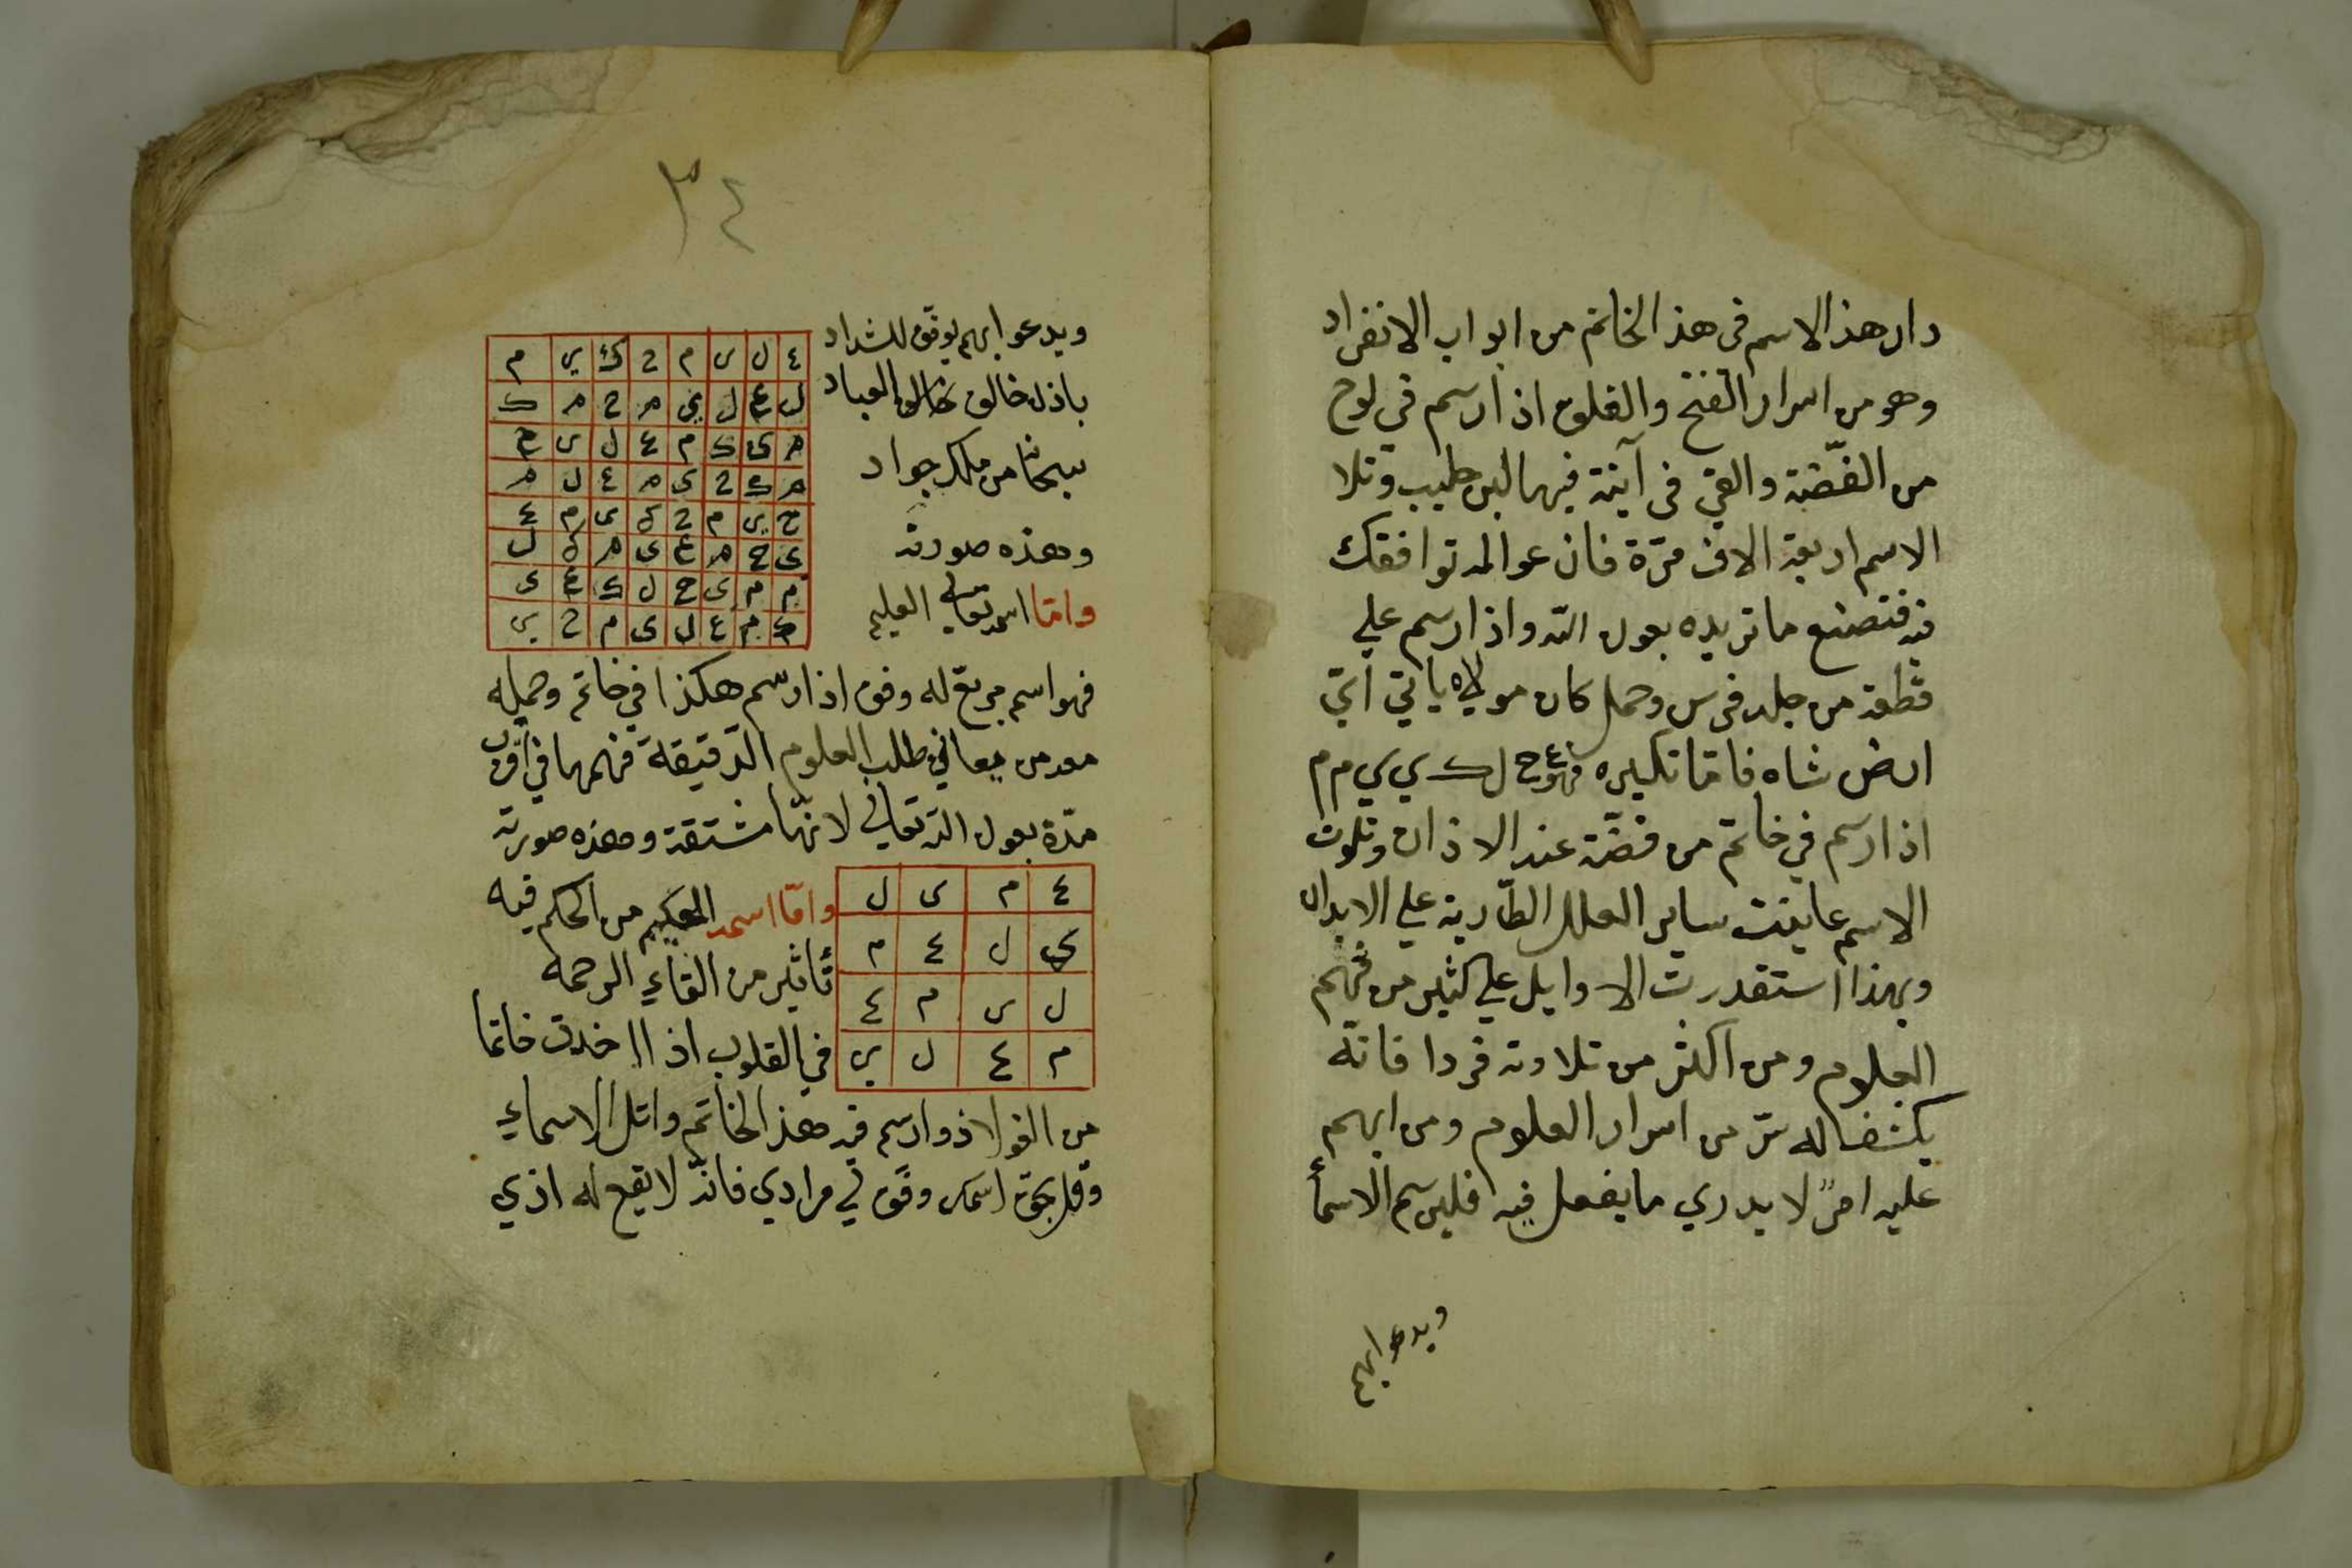 دار هذا الاسم فى هذا الخاتم من ابواب الانفراد
وهو من اسرار الفتح والقلوب اذا رسم في لوح
من الفضة والقي في آنية فيها لبن حليب وتلا
الاسم اربعة الاف مرّة فان عوالمه توافقك
فيه فتصنع ما تريده بعون الله واذا رسم علي
قطعة من جلد فرس وحمل كان مولاه ياتي
ارض شاه فاما تكسيره فهو ع ح ل ك ي ي م م
اذا رسم في خاتم من فضّة عند الاذان وتلوت
الاسم عاينت ساير العلل الطّارية علي الابدان
وبهذا استقدرت الاوايل علي كثير من فهم
العلوم ومن اكثر من تلاوته فردا فانّه
يكشف له سرّ من اسرار العلوم ومن ابهم
عليه امرٌ لا يدري ما يفعل فيه فليرسم الاسمأ
ويدعو ابهم
٣٤
ويدعو ابهم يوفق للشداد
باذن خالق العباد
سبحانه من ملك جواد
وهذه صورته
وامّا اسمه تعالي العليم
ع ل ى م ح ك ي م
ل ع ل ي م ح م ك
م ى ك م ع ل ى ح
م ك ح ى م ع ل م
ح ي م ح ك ى م ع
ى ح م ع ى م ك ل
م م ى ح ل ك ع ى
ك م ع ل ى م ح ي
فهو اسم مربع له وفق اذا رسم هكذا في خاتم وحمله
معه من يعاني طلب العلوم الدّقيقة فهمها في اقرب
مدّة بعون الله تعالي لانّها مشتقة وهذه صورته
ع م ى ل
ى ل ع م
ل ى م ع
م ع ل ي
وامّا اسمه الحكيم من الحكم فيه
تأثير من القاء الرحمه
في القلوب اذا اخدت خاتما
من الفولاذ وارسم فيه هذا الخاتم واتل الاسماء
وقل بحق اسمك وفّق لي مرادي فانّه لا يقع له اذي